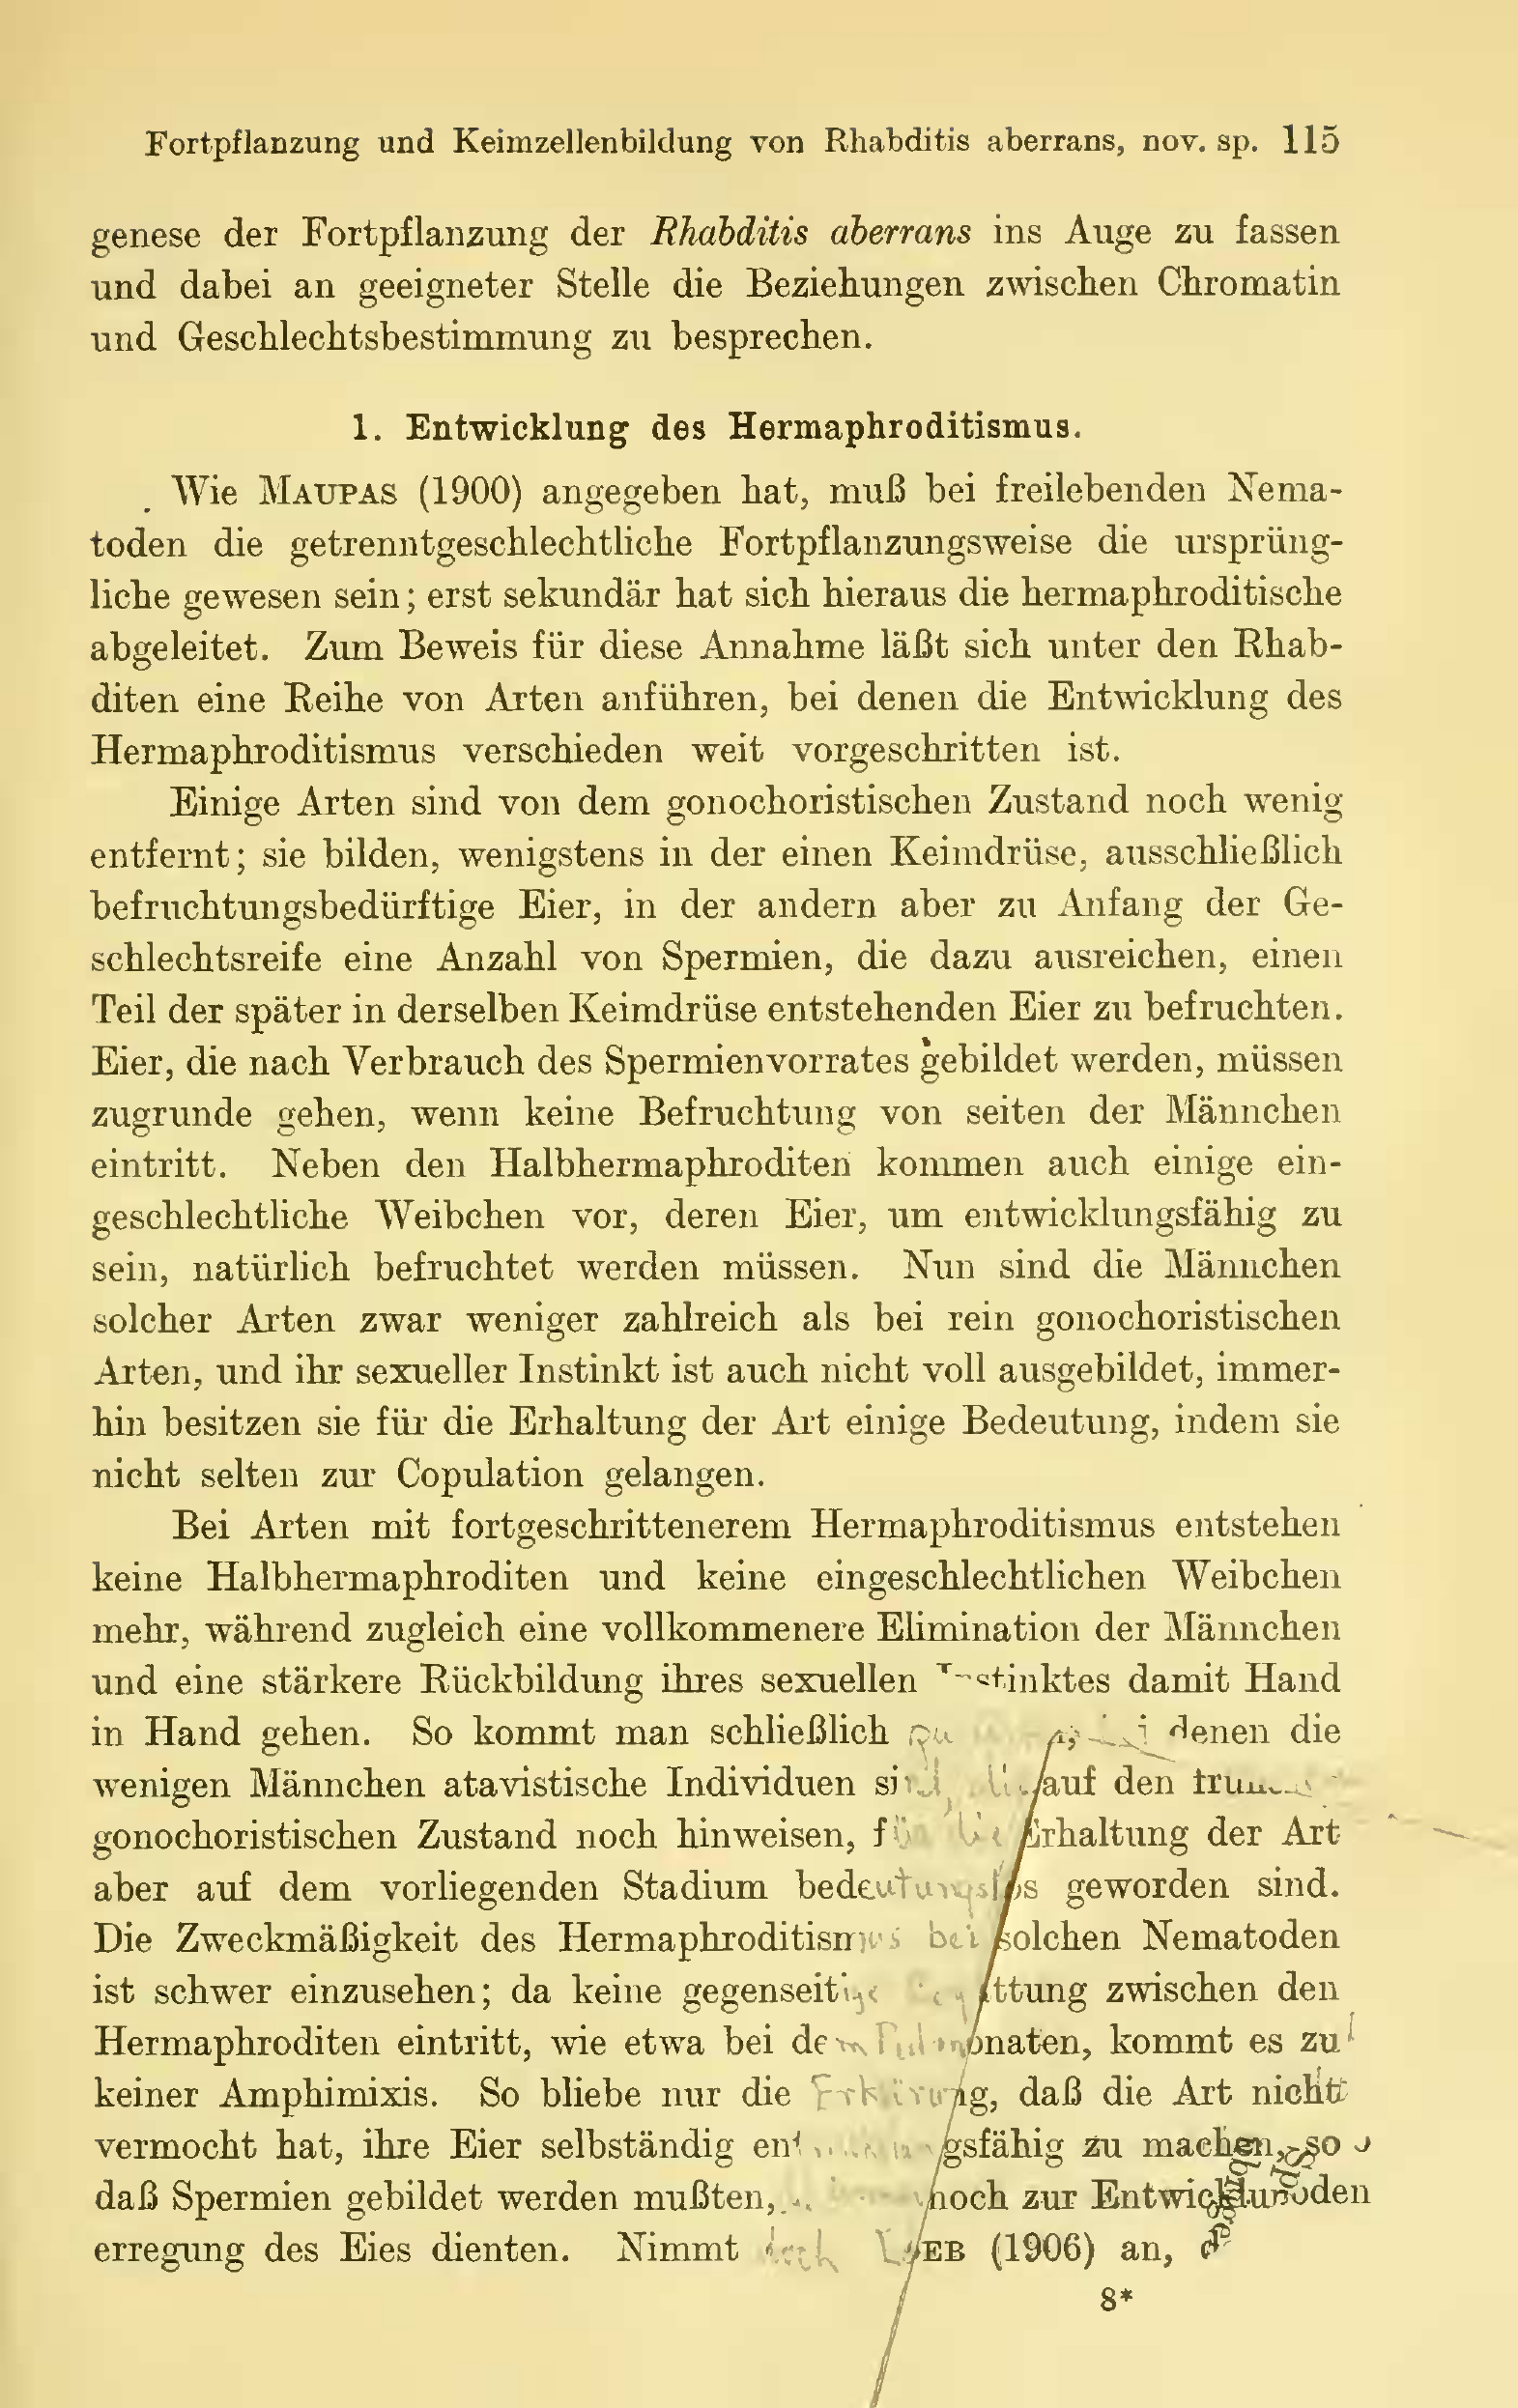 Fortpflanzung und Keimzellenbildung von Rhabditis aberrans, nov. sp. 115
genese der Fortpflanzung der Rhabditis aberrans ins Auge zu fassen
und dabei an geeigneter Stelle die Beziehungen zwischen Chromatin
und Geschlechtsbestimmung zu besprechen.
1. Entwicklung des Hermaphroditismus.
Wie MAUPAS (1900) angegeben hat, muß bei freilebenden Nema-
toden die getrenntgeschlechtliche Fortpflanzungsweise die ursprüng-
liche gewesen sein; erst sekundär hat sich hieraus die hermaphroditische
abgeleitet. Zum Beweis für diese Annahme läßt sich unter den Rhab-
diten eine Reihe von Arten anführen, bei denen die Entwicklung des
Hermaphroditismus verschieden weit vorgeschritten ist.
Einige Arten sind von dem gonochoristischen Zustand noch wenig
entfernt; sie bilden, wenigstens in der einen Keimdrüse, ausschließlich
befruchtungsbedürftige Eier, in der andern aber zu Anfang der Ge-
schlechtsreife eine Anzahl von Spermien, die dazu ausreichen, einen
Teil der später in derselben Keimdrüse entstehenden Eier zu befruchten.
Eier, die nach Verbrauch des Spermienvorrates gebildet werden, müssen
zugrunde gehen, wenn keine Befruchtung von seiten der Männchen
eintritt. Neben den Halbhermaphroditen kommen auch einige ein-
geschlechtliche Weibchen vor, deren Eier, um entwicklungsfähig zu
sein, natürlich befruchtet werden müssen. Nun sind die Männchen
solcher Arten zwar weniger zahlreich als bei rein gonochoristischen
Arten, und ihr sexueller Instinkt ist auch nicht voll ausgebildet, immer-
hin besitzen sie für die Erhaltung der Art einige Bedeutung, indem sie
nicht selten zur Copulation gelangen.
Bei Arten mit fortgeschrittenerem Hermaphroditismus entstehen
keine Halbhermaphroditen und keine eingeschlechtlichen Weibchen
mehr, während zugleich eine vollkommenere Elimination der Männchen
und eine stärkere Rückbildung ihres sexuellen Instinktes damit Hand
in Hand gehen. So kommt man schließlich denen die
wenigen Männchen atavistische Individuen sind, die auf den
gonochoristischen Zustand noch hinweisen, für die Erhaltung der Art
aber auf dem vorliegenden Stadium bedeutungslos geworden sind.
Die Zweckmäßigkeit des Hermaphroditismus bei solchen Nematoden
ist schwer einzusehen; da keine gegenseitige zwischen den
Hermaphroditen eintritt, wie etwa bei den Pulmonaten, kommt es zu
keiner Amphimixis. So bliebe nur die Erklärung, daß die Art nicht
vermocht hat, ihre Eier selbständig entwicklungsfähig zu machen, so
daß Spermien gebildet werden mußten, noch zur
erregung des Eies dienten. Nimmt doch LOEB (1906) an,
8*